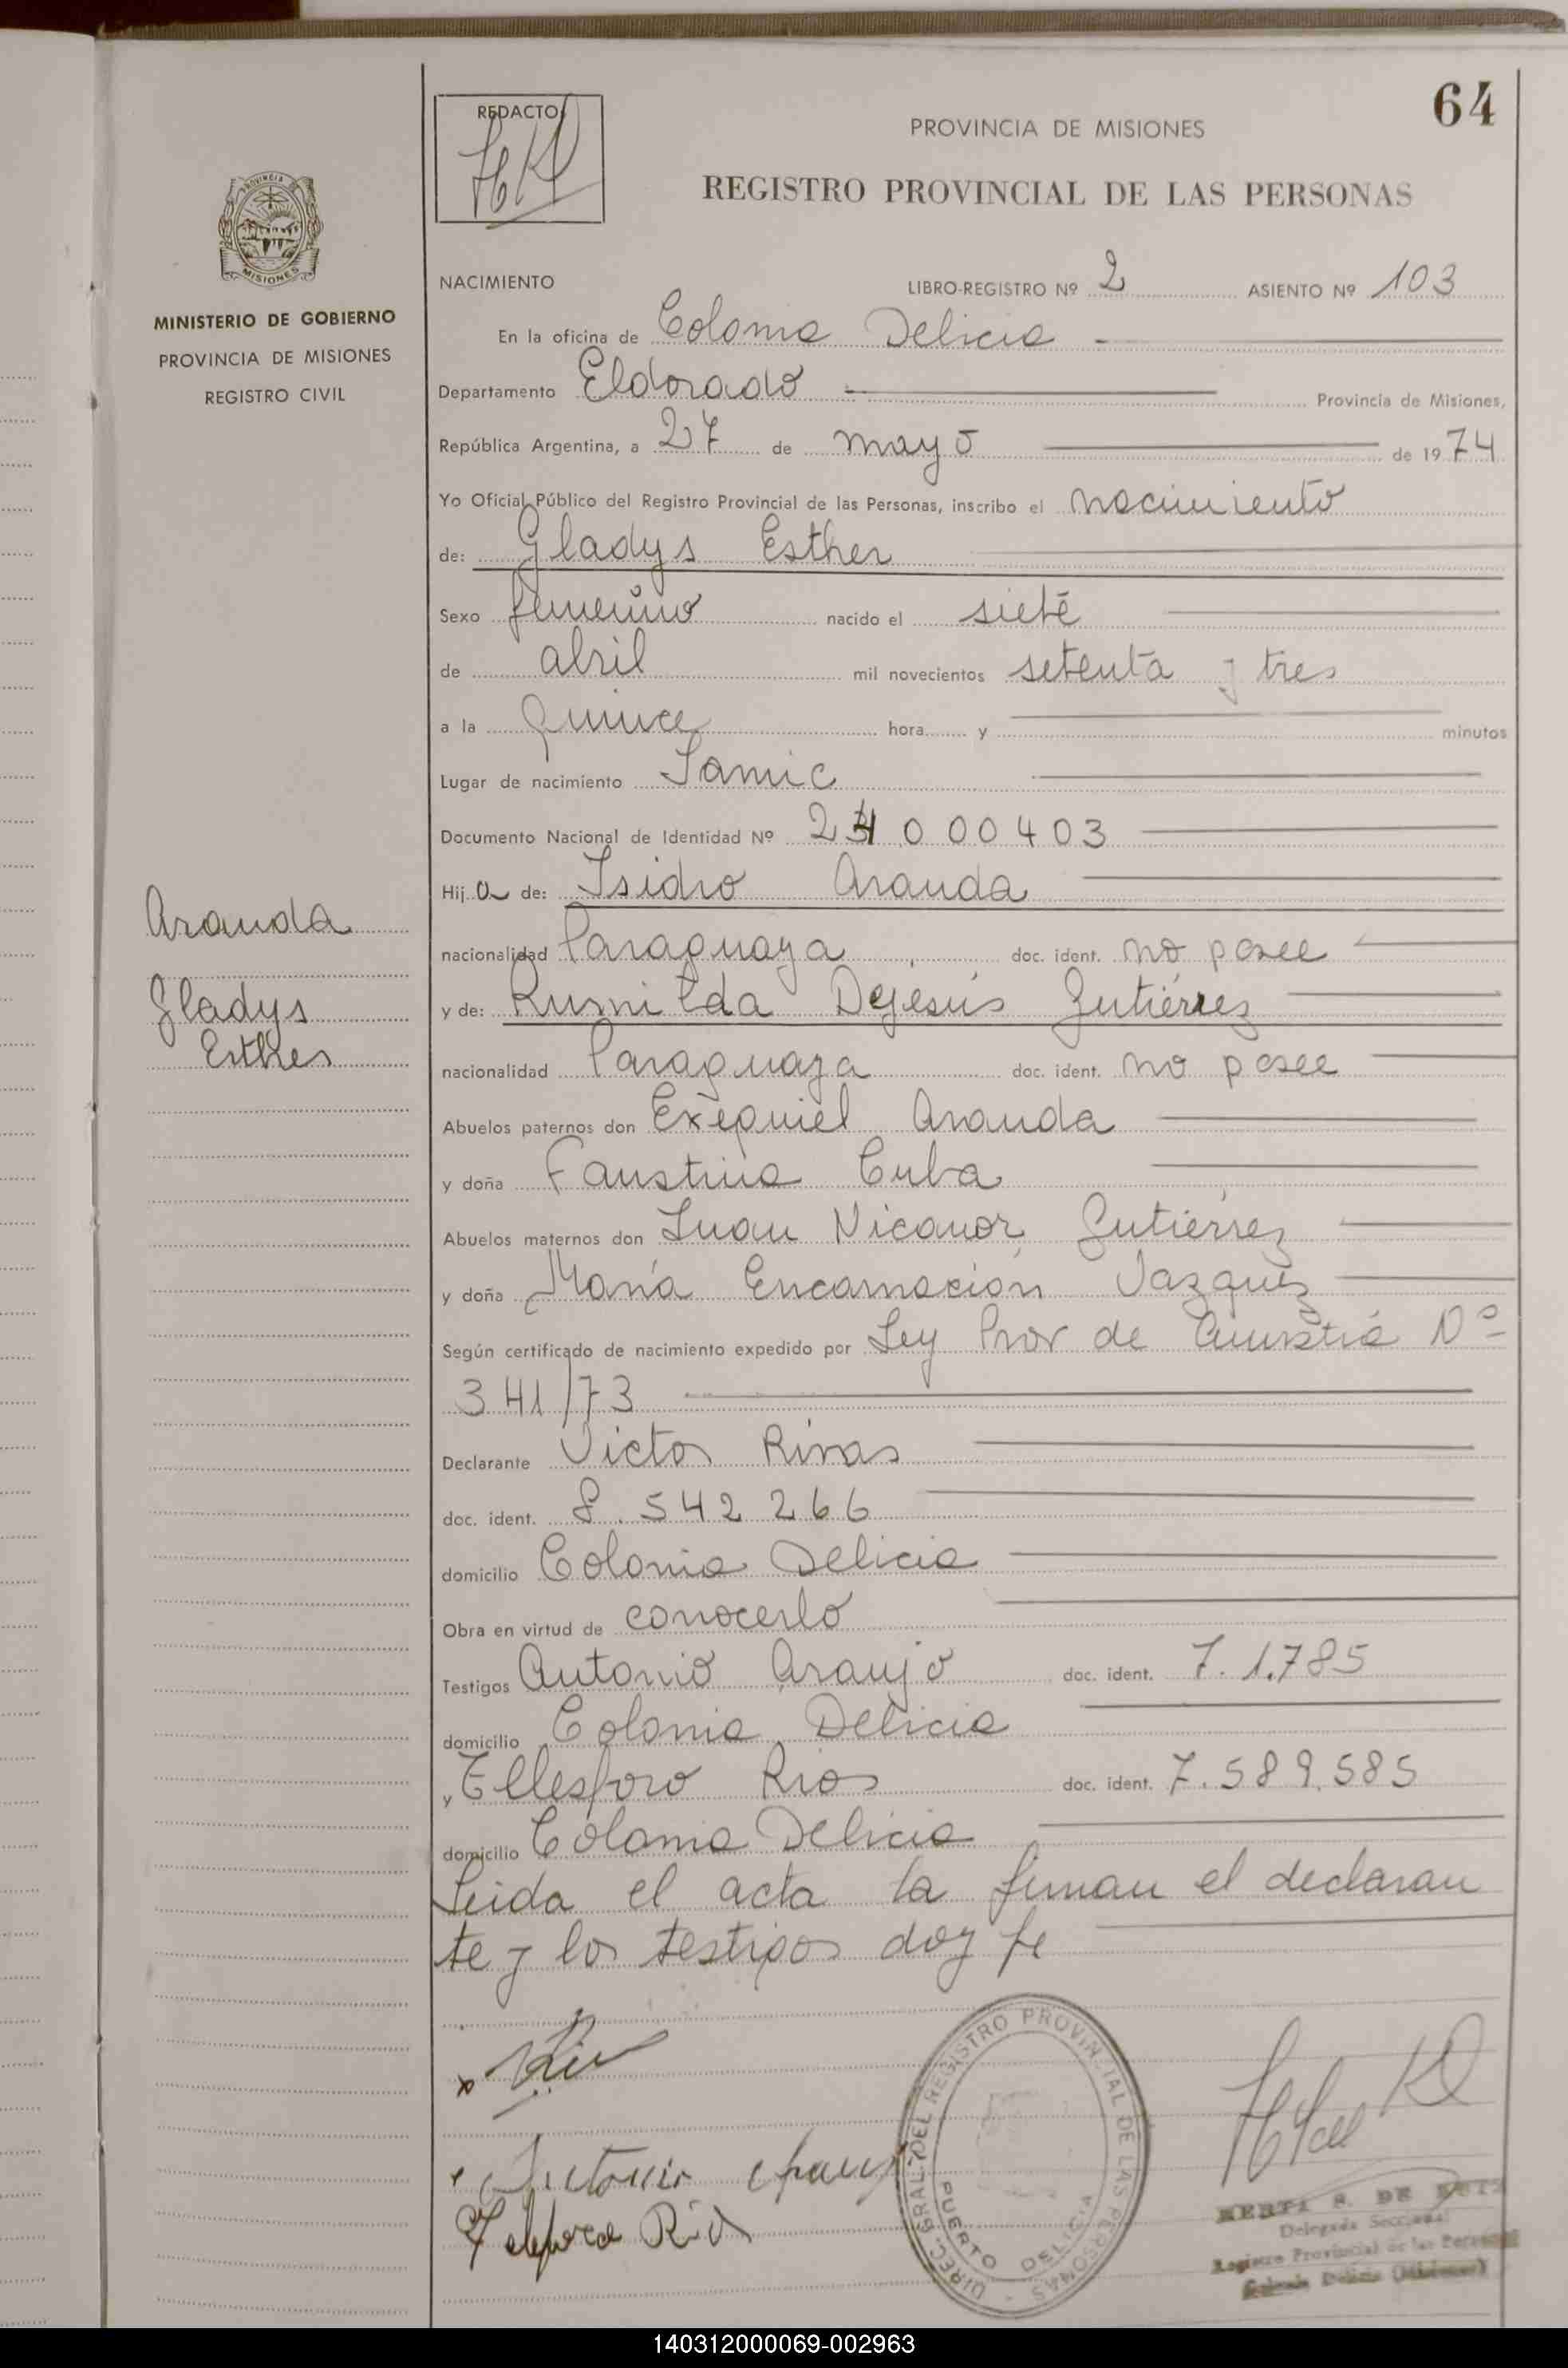 64
REDACTO
PROVINCIA DE MISIONES
REGISTRO PROVINCIAL DE LAS PERSONAS
PROVINCIA DE
MISIONES
MINISTERIO DE GOBIERNO
PROVINCIA DE MISIONES
REGISTRO CIVIL
NACIMIENTO LIBRO-REGISTRO Nº 2 ASIENTO Nº 103
En la oficina de Colonia Delicia
Departamento Eldorado Provincia de Misiones,
República Argentina, a 27 de mayo de 1974
Yo Oficial Público del Registro Provincial de las Personas, inscribo el nacimiento
de: Gladys Esther
Sexo femenino nacido el siete
de abril mil novecientos setenta y tres
a la quince hora y minutos
Lugar de nacimiento Tamic
Documento Nacional de Identidad Nº 24000403
Hija de: Isidro Aranda
Aranda
Gladys
Esther
nacionalidad Paraguaya doc. ident. no posee
y de: Rumilda Dejesús Gutiérrez
nacionalidad Paraguaya doc. ident. no posee
Abuelos paternos don Exequiel Aranda
y doña Faustina Cuba
Abuelos maternos don Juan Nicanor Gutiérrez
y doña María Encarnación Vazquez
Según certificado de nacimiento expedido por Ley Prov de Amnistía Nº
341/73
Declarante Victor Rivas
doc. ident. 8.542266
domicilio Colonia Delicia
Obra en virtud de conocerlo
Testigos Antonio Araujo doc. ident. 7.1.785
domicilio Colonia Delicia
y Tellesforo Rios doc. ident. 7.589.585
domicilio Colonia Delicia
Leida el acta la firman el declaran
te y los testigos doy fe
Antonio
Telesforo Rios
DIREC. GRAL. DEL REGISTRO PROVINCIAL DE LAS PERSONAS
PUERTO DELICIA
DE
Delegada Seccional
Registro Provincial de las Personas
Colonia Delicia (Misiones)
140312000069-002963